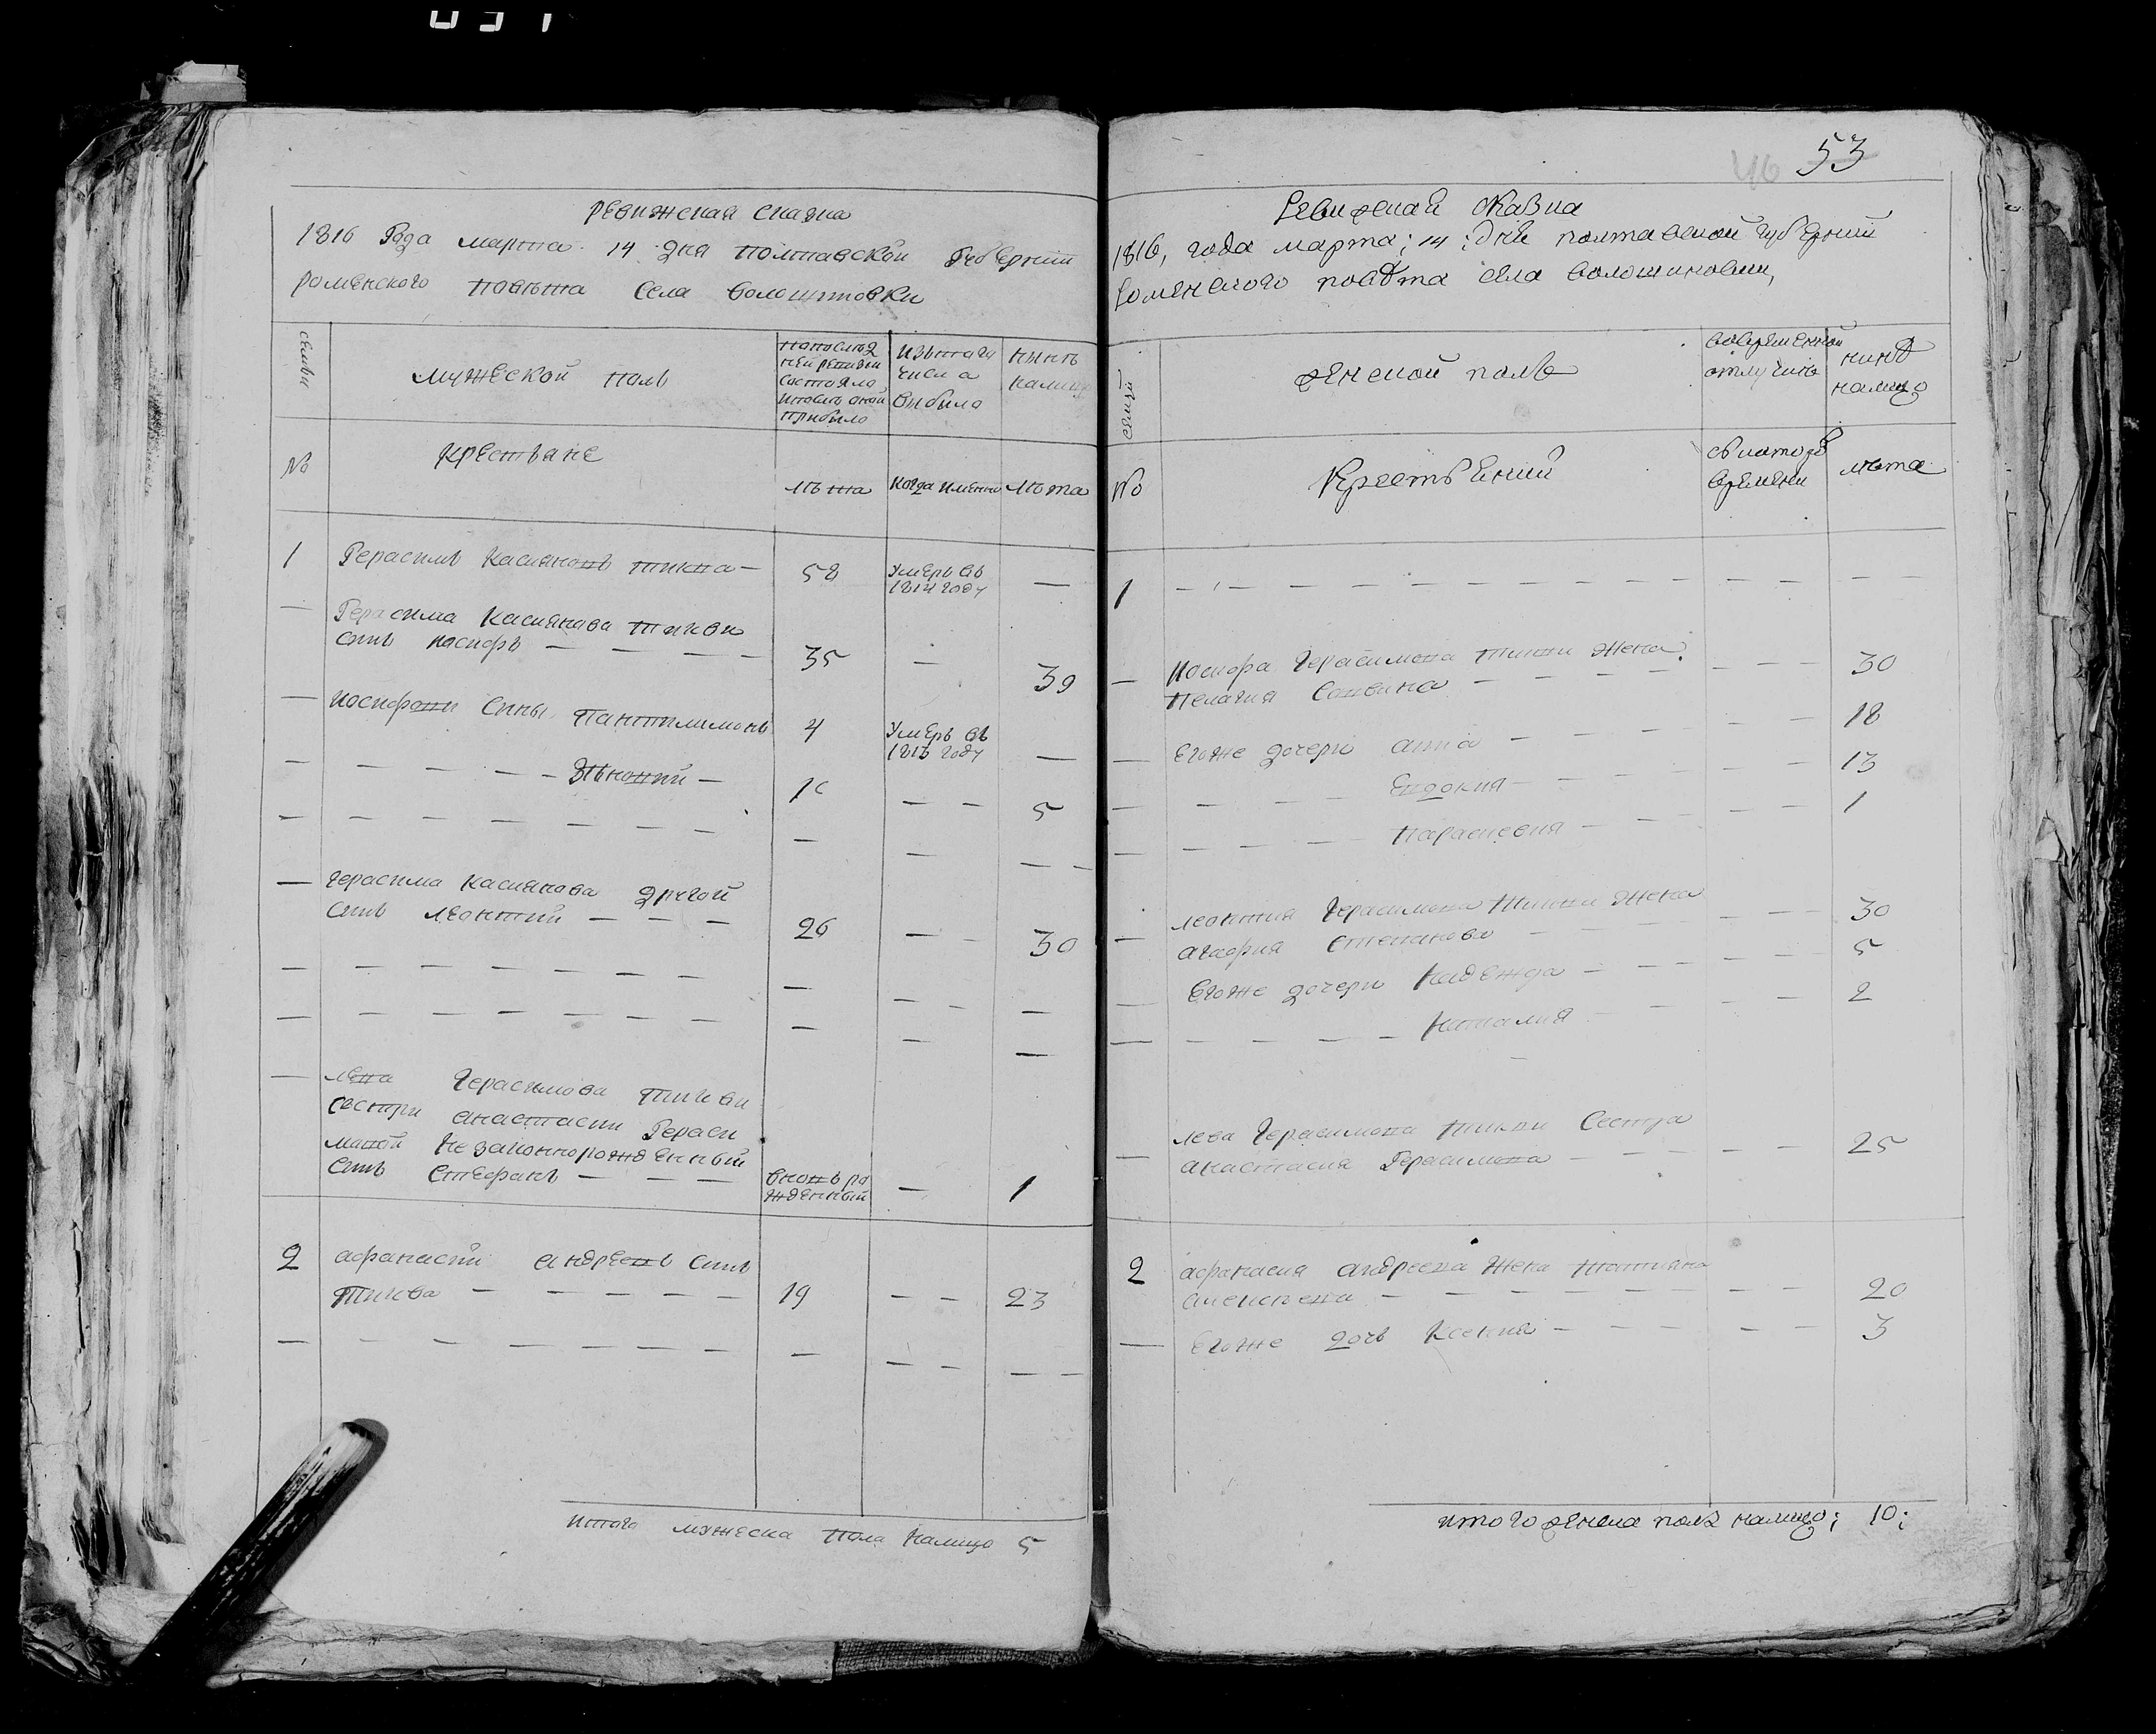 ревижская сказка
1816 Года марта 14 дня Полтавской Губернии
роменского Повѣта Села Волошновки
семьи
мужеской полъ
Попослѣд
ней ревизии
Состояло
ипослѣ оной
прибыло
Изътого
числа
выбыло
нынѣ
налицо
№
крестьяне
лѣта
Когда именно
лѣта
1 Герасимъ Касияновъ тиква — 58 Умеръ въ
1814 году —
— Герасима Касиянова Тикви
Синъ иосифъ — — — — 35 — 39
— иосифови Сины Пантилимонъ 4 Умеръ въ
1813 году —
— — — — — Зѣновий — 1 — — 5
— — — — — — — — — — —
— герасима касиянова другой
Синъ леонтий — — — 26 — — 30
— — — — — — — — — — —
— — — — — — — — — —
— лева герасимова тикви
сестри анастасии Гераси
мовой Незаконнорожденный
Синъ Стефанъ — — — вновь ро
жденный — 1
2 афанасий андреевъ Синъ
Тиква — — — — — 19 — — 23
— — — — — — — — — — — —
итого мужеска пола налицо 5
53
46
Ревижская сказка
1816, года марта; 14 ;дня полтавской губернии
роменского повѣта села волошиновки,
семьй
женской полъ
вовременной
отлучкѣ
нинѣ
налицо
№
Крестьянии
съкоторого
времени
лѣта
1 — — — — — — — — — — — —
— Иосифа герасимова тикви жена
Пелагия Саввина — — — — — 30
— Егоже дочери анна — — — — 18
— — — — Евдокия — — — — 13
— — — — Параскевия — — — — 1
леонтия герасимова тикви жена
— агафия степанова — — — — 30
— Егоже дочери надежда — — — — 5
— — — — — Наталия — — — 2
лева герасимова тикви Сестра
— анастасия Герасимова — — — — 25
2 афанасия андреева жена татияна
алексеева — — — — — — 20
— Егоже дочь Ксения — — — — 3
итого женска полa налицо; 10;